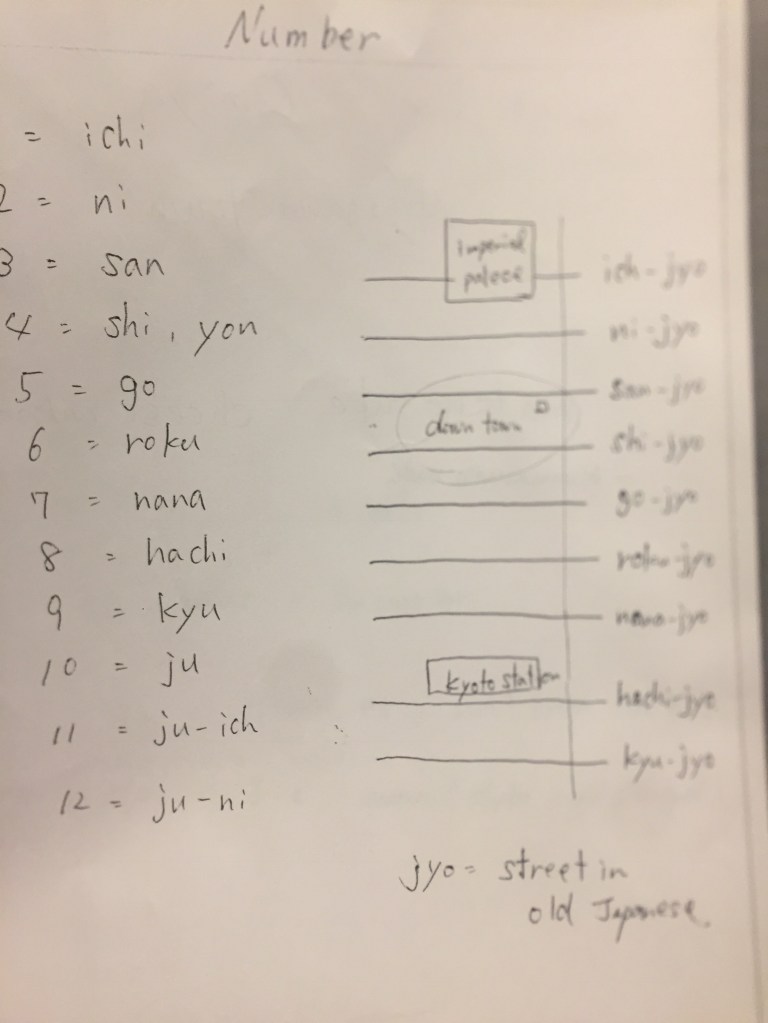 Number
= ichi
2 = ni
3 = san
4 = shi, yon
5 = go
6 = roku
7 = nana
8 = hachi
9 = kyu
10 = ju
11 = ju-ich
12 = ju-ni
imperial
palece
ich-jyo
ni-jyo
san-jyo
down town
shi-jyo
go-jyo
roku-jyo
nana-jyo
kyoto station
hachi-jyo
kyu-jyo
jyo = street in
old Japanese.